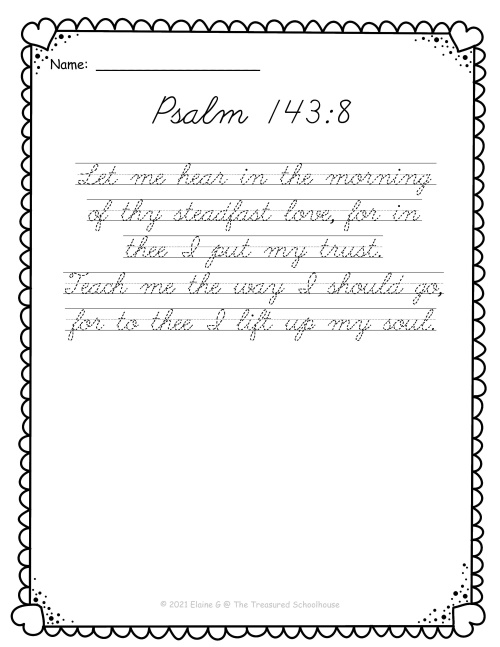 Name: ____________________
Psalm 143:8
Let me hear in the morning
of thy steadfast love, for in
thee I put my trust.
Teach me the way I should go,
for to thee I lift up my soul.
© 2021 Elaine G @ The Treasured Schoolhouse